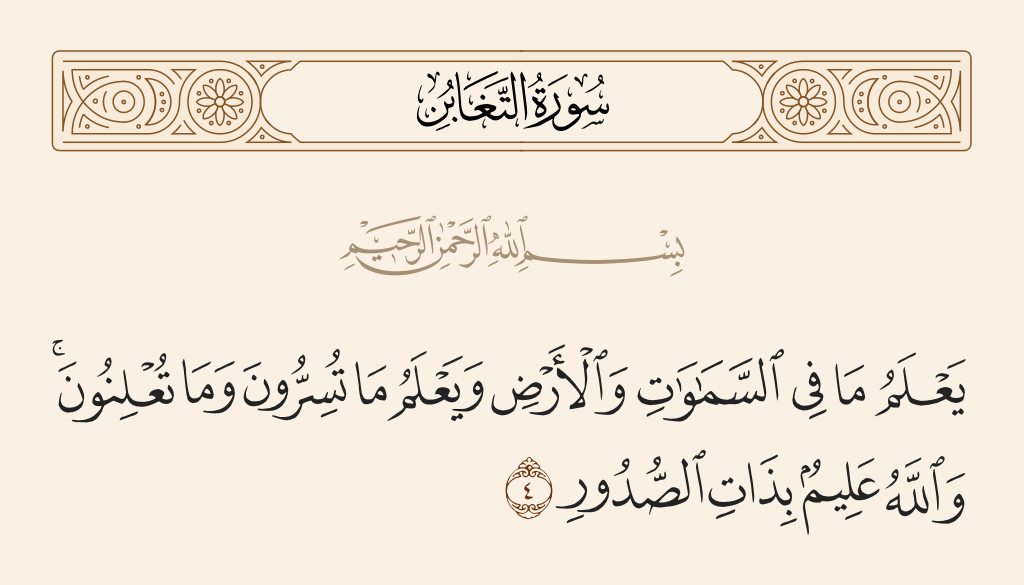 سُورَةُ التَّغَابُنِ
بِسْمِ ٱللَّهِ ٱلرَّحْمَٰنِ ٱلرَّحِيمِ
يَعْلَمُ مَا فِى ٱلسَّمَٰوَٰتِ وَٱلْأَرْضِ وَيَعْلَمُ مَا تُسِرُّونَ وَمَا تُعْلِنُونَ ۚ
وَٱللَّهُ عَلِيمٌۢ بِذَاتِ ٱلصُّدُورِ ٤